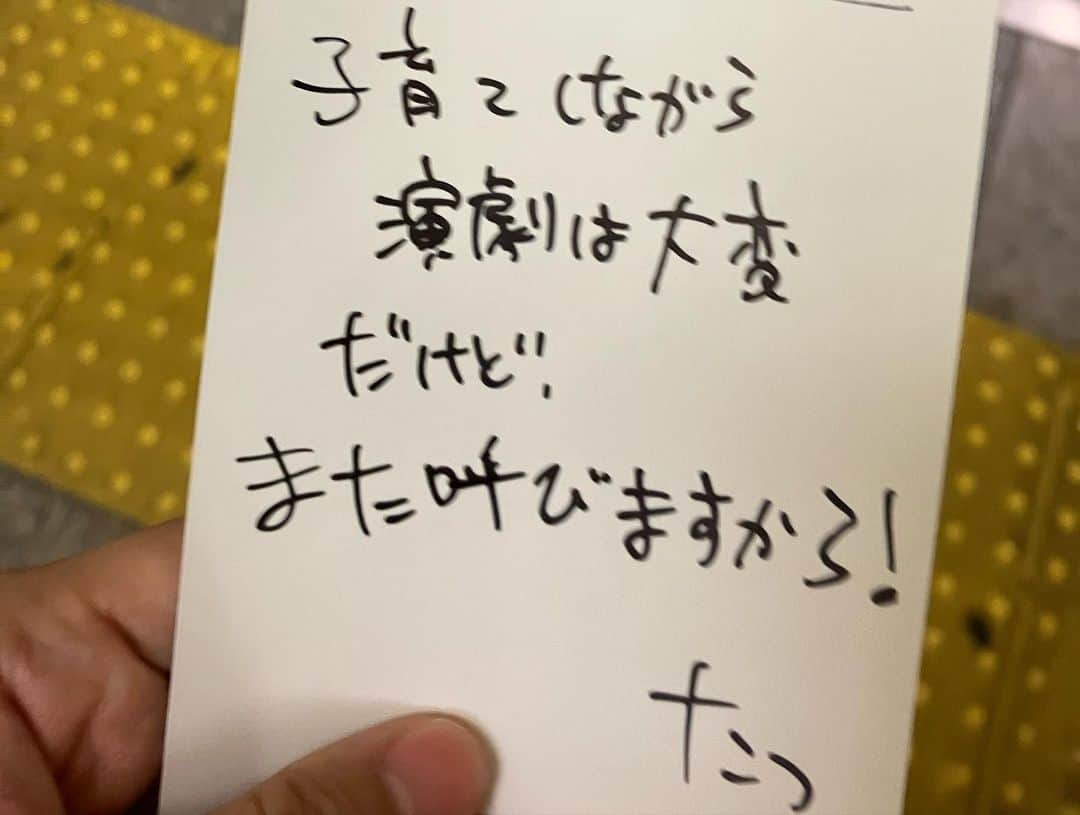 子育てしながら
演劇は大変
だけど、
また呼びますから!
たつ